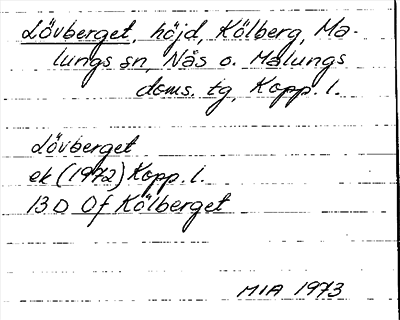 Lövberget, höjd, Kölberg, Ma-
lungs sn, Nås o. Malungs
doms. tg, Kopp. l.
Lövberget
ek (1972) Kopp. l.
13 D Of Kölberget
MIA 1973